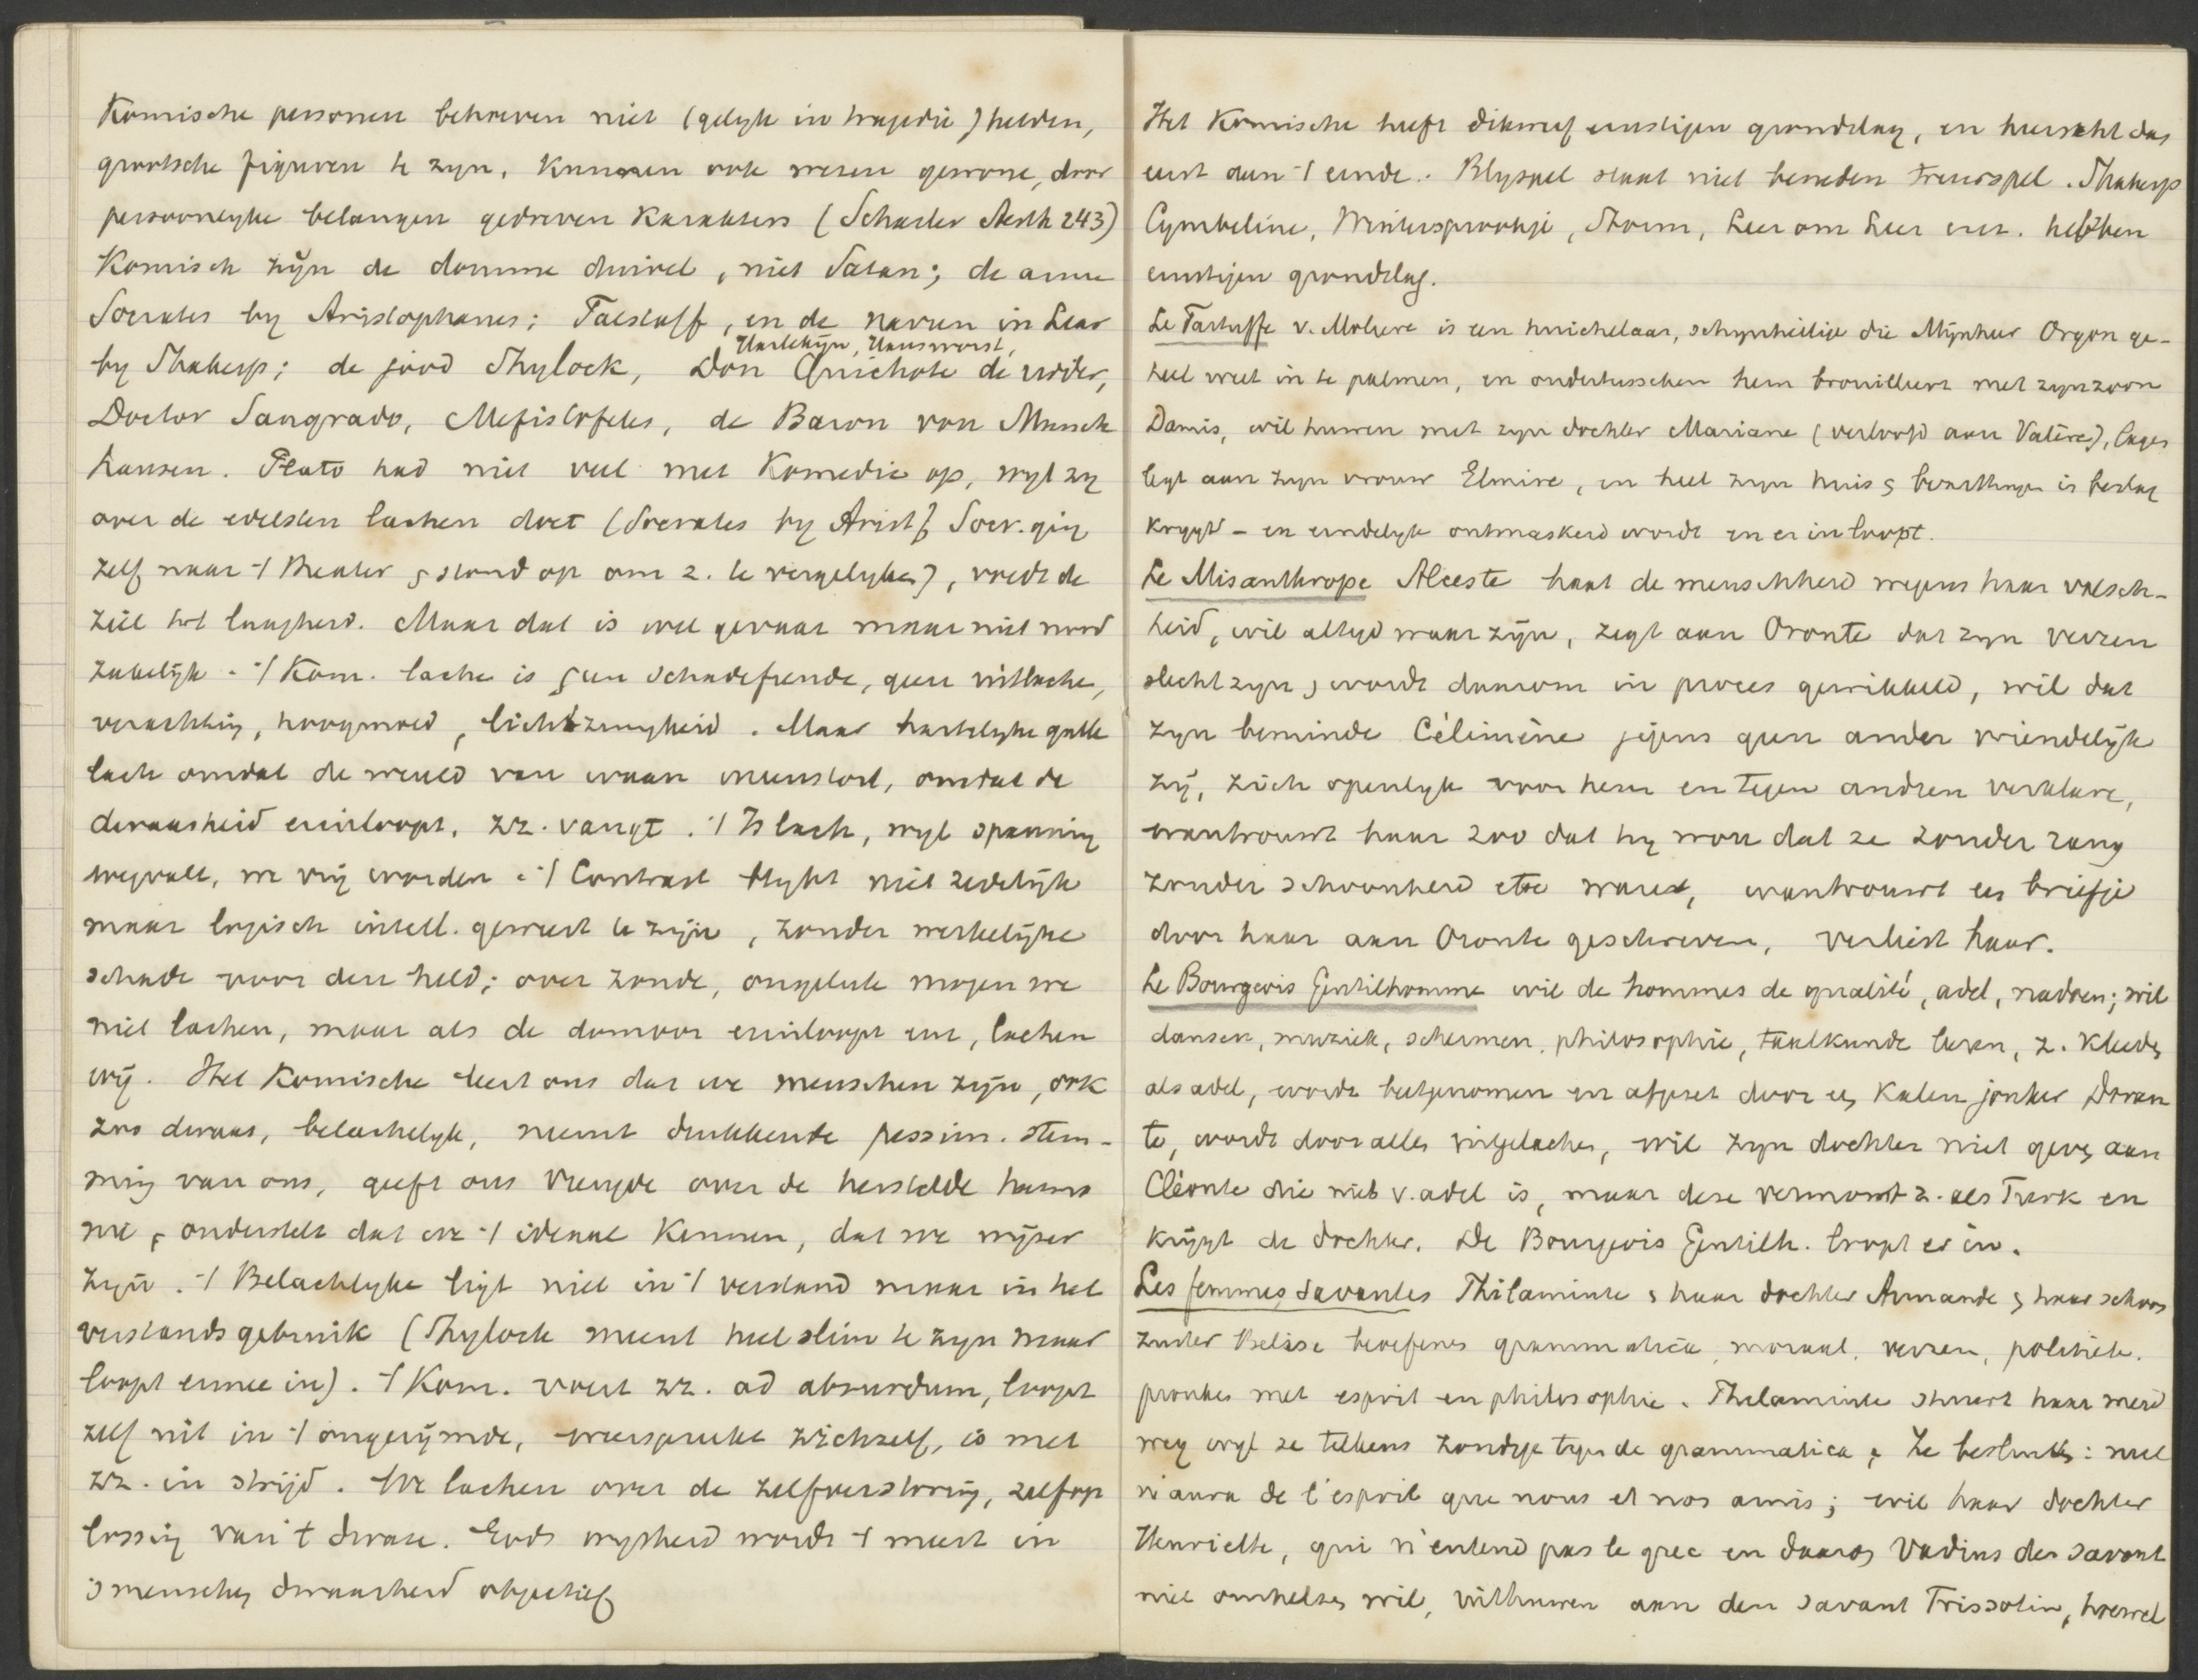 Komische personen behoeven niet (gelyk in tragedie) helden,
grootsche figuren te zyn, kunnen ook wezen gewone, door
persoonlyke belangen gedreven karakters (Schasler Aesth 243)
Komisch zijn de domme duivel, niet Satan; de arme
Socrates by Aristophanes; Falstaff, en de narren in Lear
by Shakesp; de jood Shylock, Harlekijn, Hansworst, Don Quichote de ridder,
Doctor Sangrado, Mefistofeles, de Baron von Munch
hausen. Plato had niet veel met Komedie op, wyl zy
over de edelsten lachen doet (Socrates by Arist, Socr. ging
zelf naar 't theater & stond op om z. te vergelyken), voedt de
ziel tot laagheid. Maar dat is wel gevaar maar niet nood
zakelijk. 't Kom. lachen is geen schadefreude, geen uitlachen,
verachting, hoogmoed, lichtzinnigheid. Maar hartelyke gulle
lach omdat de wereld van waan ineenstort, omdat de
dwaasheid erinloopt, zz. vangt. 't Is lach, wyl spanning
wegvalt, we vrij worden. 't Contrast blykt niet zedelijk
maar logisch intell. geweest te zijn, zonder werkelijke
schade voor den held; over zonde, ongeluk mogen we
niet lachen, maar als de domoor erinloopt enz, lachen
wij. Het Komische leert ons dat we menschen zijn, ook
zoo dwaas, belachelyk, neemt drukkende pessim. stem-
ming van ons, geeft ons vreugde over de herstelde harmo
nie, onderstelt dat we 't ideaal kennen, dat we wijzer
zijn. 't Belachlyke ligt niet in 't verstand maar in het
verstandsgebruik (Shylock meent heel slim te zyn maar
loopt ermee in). 't Kom. voert zz. ad absurdum, loopt
zelf uit in 't ongerijmde, weerspreekt zichzelf, is met
zz. in strijd. We lachen over de zelfverstoring, zelfop
lossing van 't dwaze. Gods wysheid wordt 't meest in
's menschen dwaasheid objectief
Het Komische heeft dikwerf ernstigen grondslag, en heerscht dus
eerst aan 't einde. Blyspel staat niet beneden treurspel. Shakesp
Cymbeline, Wintersprookje, Storm, Leer om Leer enz. hebben
ernstigen grondslag.
Le Tartuffe v. Moliere is een huichelaar, schynheilige die Mijnheer Orgon ge-
heel weet in te palmen, en ondertusschen hem brouilleert met zyn zoon
Damis, wil huwen met zyn dochter Mariane (verloofd aan Valère), lagen
legt aan zyn vrouw Elmire, en heel zyn huis & bezittingen in beslag
krygt - en eindelyk ontmaskerd wordt en er in loopt.
Le Misanthrope Alceste haat de menschheid wegens haar valsch-
heid, wil altyd waar zijn, zegt aan Oronte dat zyn verzen
slecht zyn, wordt daarom in proces gewikkeld, wil dat
zyn beminde Célimène jegens geen ander vriendelijk
zij, zich openlyk voor hem en tegen andren verklare,
wantrouwt haar zoo dat hy wou dat ze zonder rang
zonder schoonheid etc ware, wantrouwt een briefje
door haar aan Oronte geschreven, verliest haar.
Le Bourgeois Gentilhomme wil de hommes de qualité, adel, nadoen; wil
dansen, muziek, schermen, philosophie, taalkunde leeren, z. kleeden
als adel, wordt beetgenomen en afgezet door een kalen jonker Doran
te, wordt door allen uitgelachen, wil zyn dochter niet geven aan
Cléonte die niet v. adel is, maar deze vermomt z. als Turk en
krijgt de dochter. De Bourgeois Gentilh. loopt er in.
Les femmes savantes Philaminte & haar dochter Armande & haar schoon
zuster Belise beoefenen grammatica, moraal, verzen, politiek.
pronken met esprit en philosophie. Philaminte stuurt haar meid
weg wyl ze telkens zondigt tegen de grammatica, Ze besluiten: nul
n'aura de l'esprit que nous et nos amis; wil haar dochter
Henriette, qui n'entend pas le grec en daarom Vadius den savant
niet omhelzen wil, uithuwen aan den savant Trissotin, hoewel